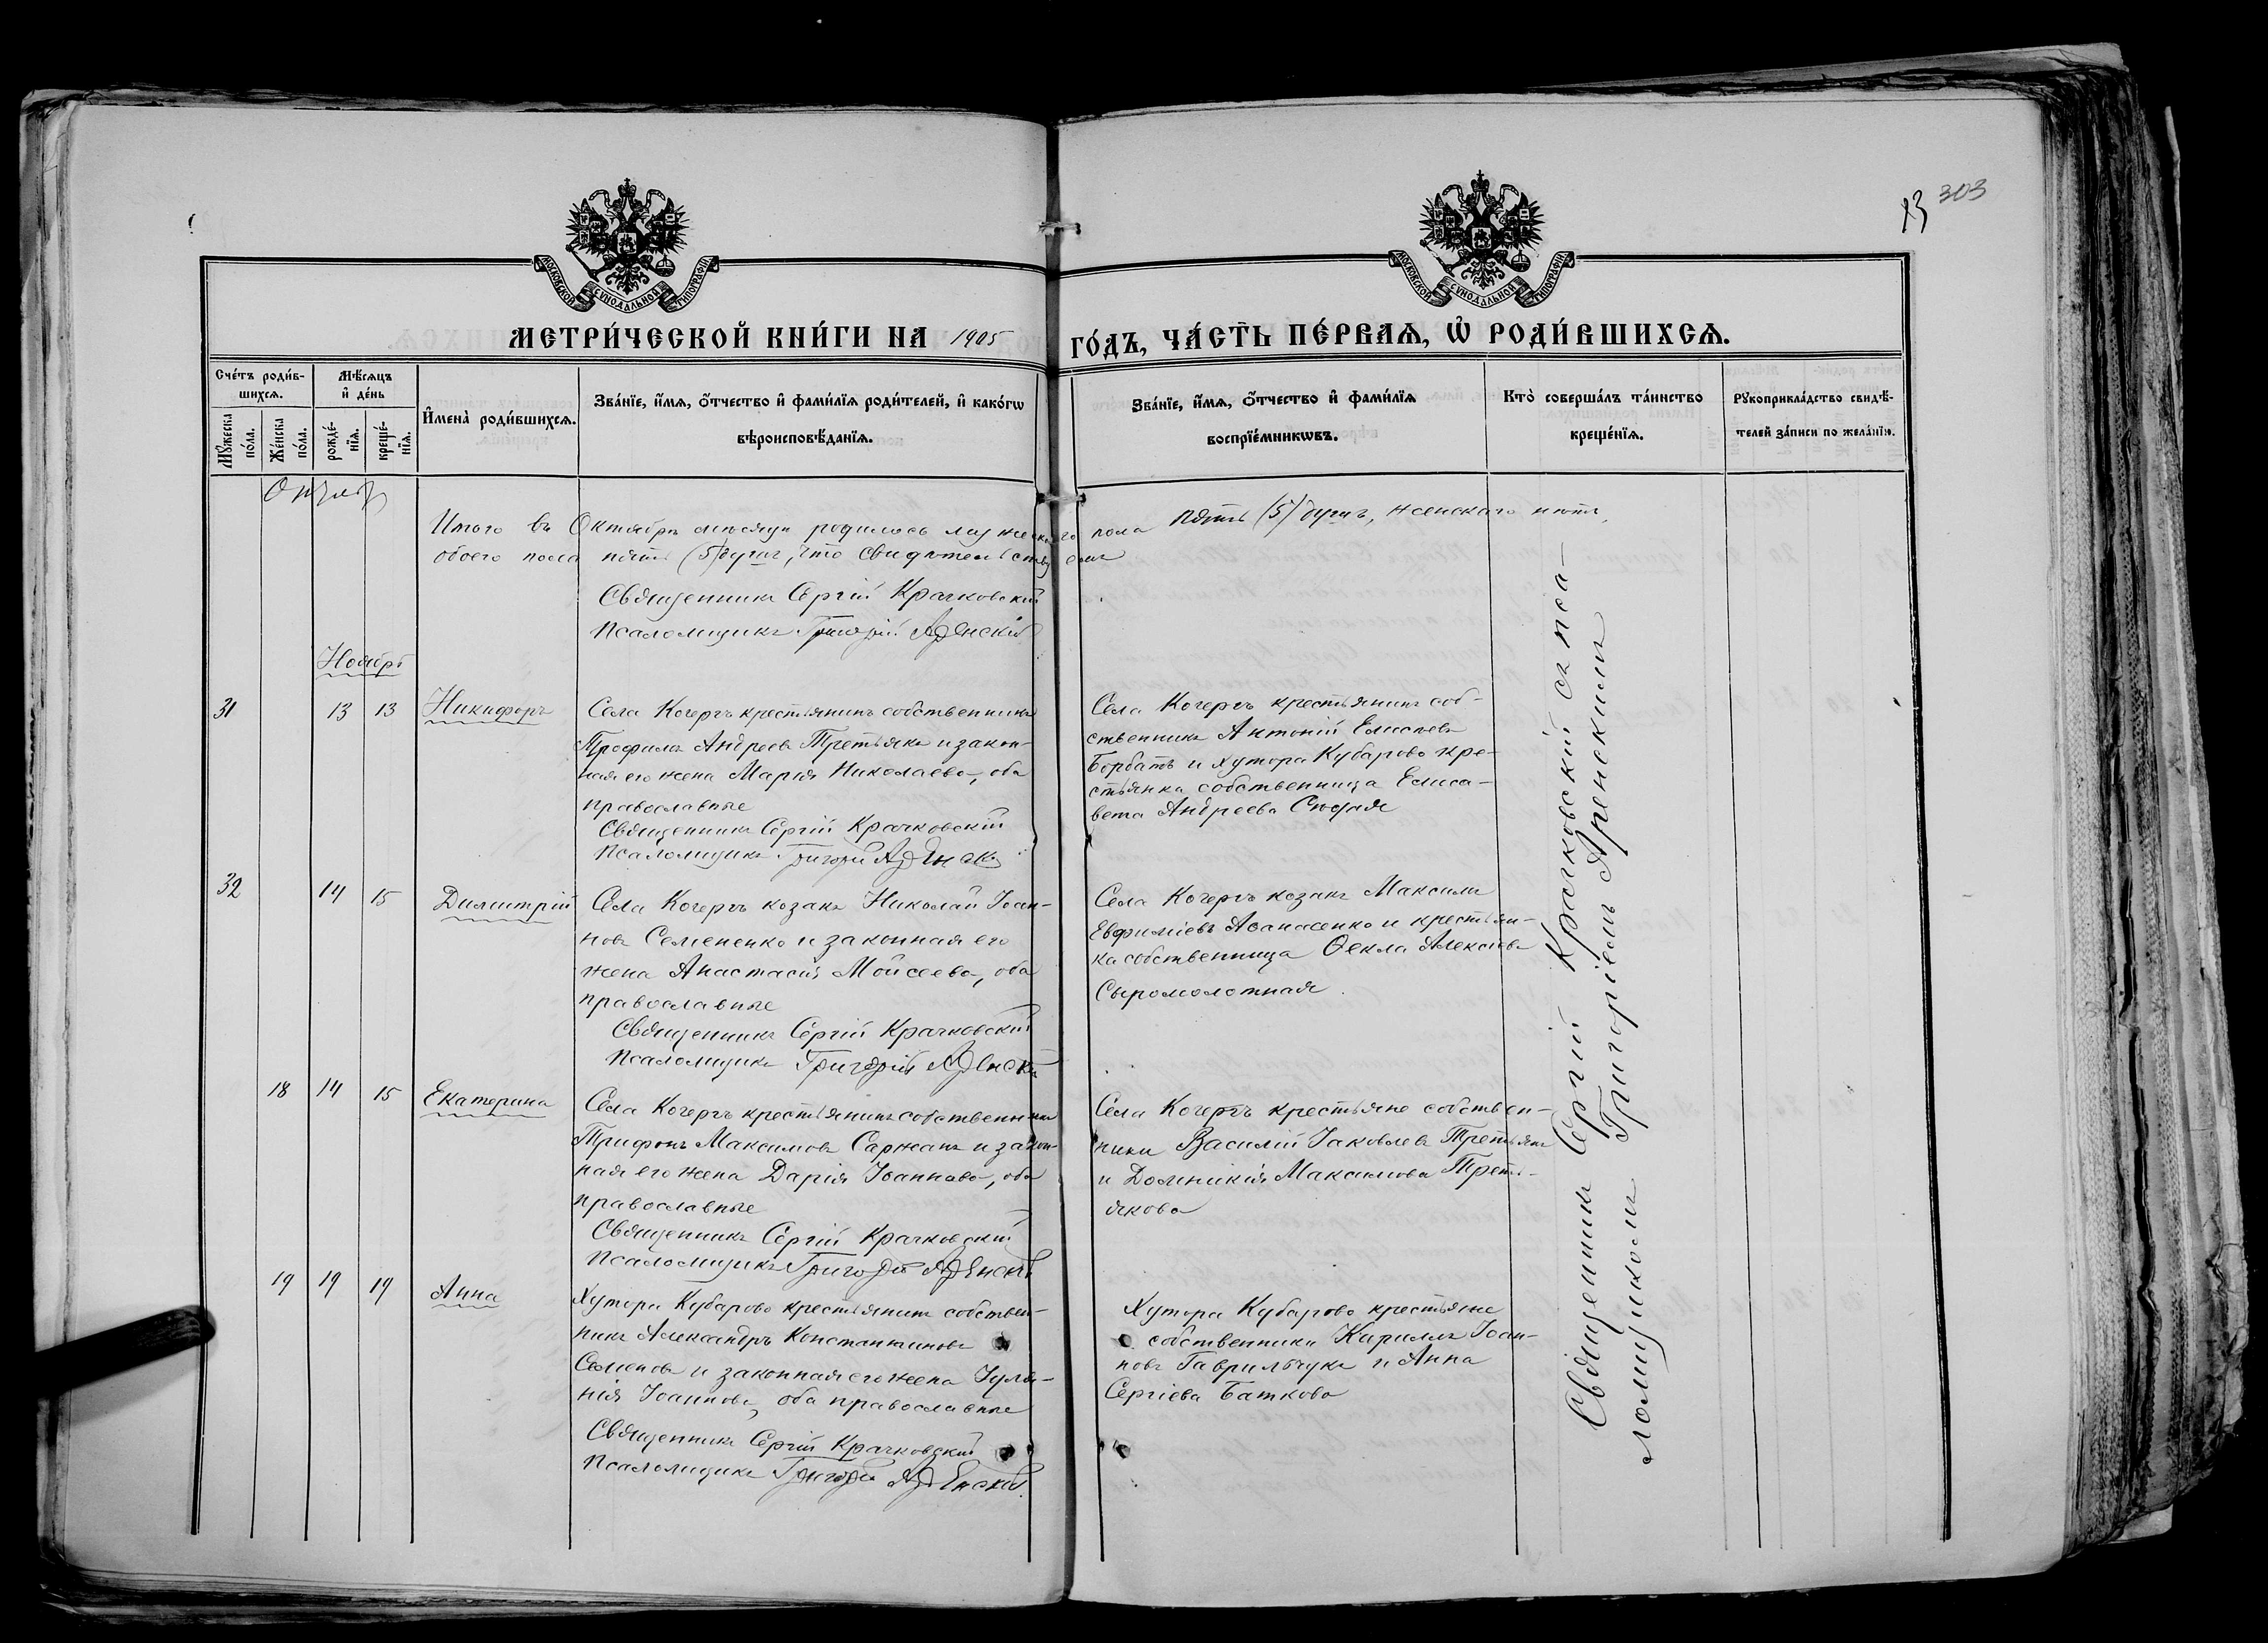 303
МОСКОВСКОЙ СУНОДАЛЬНОЙ ТИПОГРАФІИ
МОСКОВСКОЙ СУНОДАЛЬНОЙ ТИПОГРАФІИ
МЕТРИ́ЧЕСКОЙ КНИ́ГИ НА 1905 ГО́ДЪ, ЧА́СТЬ ПЕ́РВАѦ, Ѡ РОДИ́ВШИХСѦ.
Сче́тъ роди́в-
шихсѧ.
Мꙋжеска по́ла.
Же́нска по́ла.
Мѣ́сѧцъ
и҆ де́нь
рожде́-
нїѧ.
креще́-
нїѧ.
И҆мена̀ роди́вшихсѧ.
Зва́нїе, и҆́мѧ, ѻ҆́тчество и҆ фами́лїѧ роди́телей, и҆ како́гѡ
вѣроисповѣ́данїѧ.
Зва́нїе, и҆́мѧ, ѻ҆́тчество и҆ фами́лїѧ
воспрїе́мникѡвъ.
Кто̀ соверша́лъ та́инство
креще́нїѧ.
Рꙋкоприкла́дство свидѣ́-
телей за́писи по жела́нїю.
Итого въ Октябрѣ мѣсяцѣ родилось мужескаго пола пять (5) душъ, женскаго
обоего пола пять (5) душъ, что свидѣтельствуемъ
Священникъ Сергій Крачковскій
Псаломщикъ Григорій Аренскій
Ноябрь
31 13 13 Никифоръ
Села Кочергъ крестьянинъ собственникъ
Трофимъ Андреевъ Третьякъ и закон-
ная его жена Марія Николаева, оба
православные
Священникъ Сергій Крачковскій
Псаломщикъ Григорій Аренскій
Села Кочергъ крестьянинъ соб-
ственникъ Антоній Елисеевъ
Борбатъ и хутора Кубарово кре-
стьянка собственница Елиса-
вета Андреева
32 14 15 Димитрій
Села Кочергъ козакъ Николай Іоан-
новъ Семененко и законная его
жена Анастасія Моисеева, оба
православные
Священникъ Сергій Крачковскій
Псаломщикъ Григорій Аренскій
Села Кочергъ козакъ Максимъ
Евфиміевъ Аѳанасенко и крестьян-
ка собственница Ѳекла Алексѣева
Сыромолотная
18 14 15 Екатерина
Села Кочергъ крестьянинъ собственникъ
Трифонъ Максимовъ Саржанъ и закон-
ная его жена Дарія Іоаннова, оба
православные
Священникъ Сергій Крачковскій
Псаломщикъ Григорій Аренскій
Села Кочергъ крестьяне собствен-
ники Василій Іаковлевъ Третьякъ
и Домникія Максимова Треть-
якова
19 19 19 Анна
Хутора Кубарово крестьянинъ собствен-
никъ Александръ Константиновъ
Семеновъ и законная его жена Іулiа-
нія Іоаннова, оба православные
Священникъ Сергій Крачковскій
Псаломщикъ Григорій Аренскій
Хутора Кубарово крестьяне
собственники Кириллъ Іоан-
новъ Гаврильчукъ и Анна
Сергіева Баткова
Священникъ Сергій Крачковскій съ пса-
ломщикомъ Григоріемъ Аренскимъ